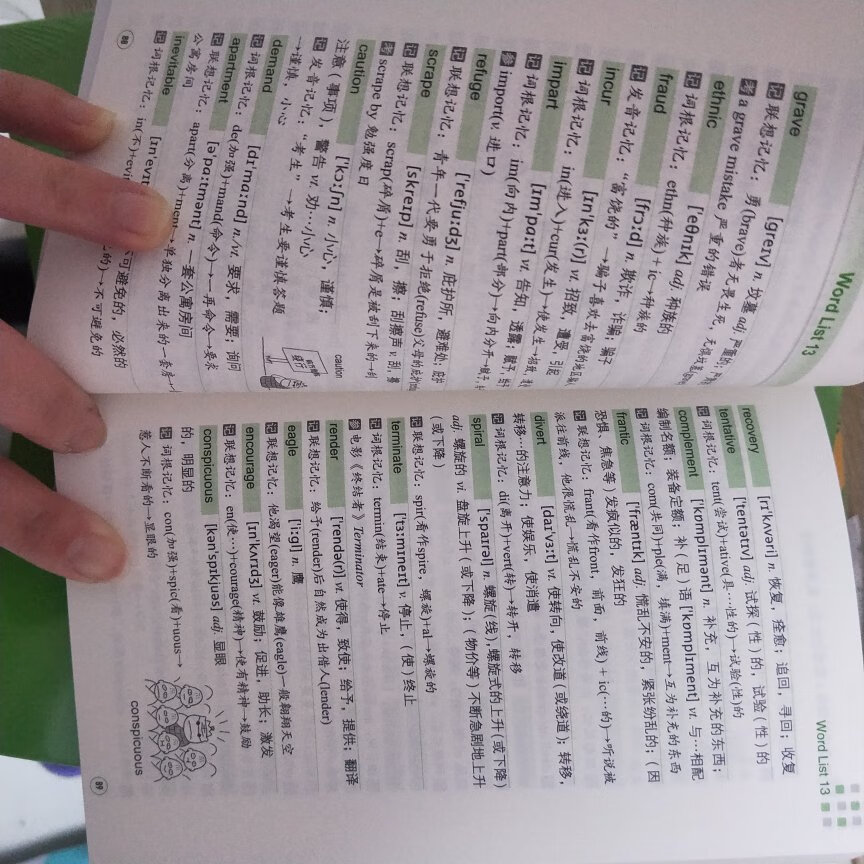 Word List 13
grave [greɪv] n. 坟墓 adj. 严重的;
记 联想记忆：勇(brave)者无畏生死，无惧坟墓
考 a grave mistake 严重的错误
ethnic ['eθnɪk] adj. 种族的
记 词根记忆：ethn(种族)+ic→种族的
fraud [frɔːd] n. 欺诈，诈骗；骗子
记 发音记忆：“富饶的”→骗子喜欢去富饶的地
incur [ɪn'kɜː(r)] vt. 招致，遭受，引起
记 词根记忆：in(进入)+cur(发生)→使发生→招致，
impart [ɪm'pɑːt] vt. 告知，透露；赋予，
记 词根记忆：im(向内)+part(部分)→向内分开→赋予，
参 import(v. 进口)
refuge ['refjuːdʒ] n. 庇护所，避难处；庇护
记 联想记忆：青年一代要勇于拒绝(refuse)父母的庇护
scrape [skreɪp] n. 刮，擦；刮擦声 v. 刮，擦
记 联想记忆：scrap(碎屑)+e→碎屑是被刮下来的→刮
考 scrape by 勉强度日
caution ['kɔːʃn] n. 小心，谨慎；
注意(事项)，警告 vt. 劝…小心
记 发音记忆：“考生”→考生要谨慎答题
→谨慎，小心
caution
demand [dɪ'mɑːnd] n./v. 要求，需要；询问
记 词根记忆：de(加强)+mand(命令)→一再命令→要求
apartment [ə'pɑːtmənt] n. 一套公寓房间
记 联想记忆：apart(分离)+ment→单独分离出来的一套房→
公寓房间
inevitable [ɪn'evɪt 不可避免的，必然的
记 词根记忆：in(不)+evi 的)→不可避免的
88
Word List 13
recovery [rɪ'kʌvəri] n. 恢复，痊愈；追回，寻回；收复
tentative ['tentətɪv] adj. 试探(性)的，试验(性)的
记 词根记忆：tent(尝试)+ative(具…性的)→试验(性)的
complement ['kɒmplɪmənt] n. 补充，互为补充的东西；
编制名额；装备定额；补(足)语 ['kɒmplɪment] vt. 与…相配
记 词根记忆：com(共同)+ple(满，填满)+ment→互为补充的东西
frantic ['fræntɪk] adj. 慌乱不安的，紧张纷乱的；(因
恐惧、焦急等)发疯似的，发狂的
记 联想记忆：frant(看作front，前面，前线)+ic(…的)→听说被
派往前线，他很慌乱→慌乱不安的
divert [daɪ'vɜːt] vt. 使转向，使改道(或绕道)；转移，
转移…的注意力；使娱乐，使消遣
记 词根记忆：di(离开)+vert(转)→转开，转移
spiral ['spaɪrəl] n. 螺旋(线)，螺旋式的上升(或下降)
adj. 螺旋的 vi. 盘旋上升(或下降)；(物价等)不断急剧地上升
(或下降)
记 联想记忆：spir(看作spire，螺旋)+al→螺旋的
terminate ['tɜːmɪneɪt] v. 停止，(使)终止
记 词根记忆：termin(结束)+ate→停止
参 电影《终结者》Terminator
render ['rendə(r)] vt. 使得，致使；给予，提供；翻译
记 联想记忆：给予(render)后自然成为出借人(lender)
eagle ['iːgl] n. 鹰
记 联想记忆：他渴望(eager)能像雄鹰(eagle)一般翱翔天空
encourage [ɪn'kʌrɪdʒ] vt. 鼓励；促进，助长，激发
记 联想记忆：en(使…)+courage(精神)→使有精神→鼓励
conspicuous [kən'spɪkjuəs] adj. 显眼
的，明显的
记 词根记忆：con(加强)+spic(看)+uous→
惹人不断看的→显眼的
conspicuous
89